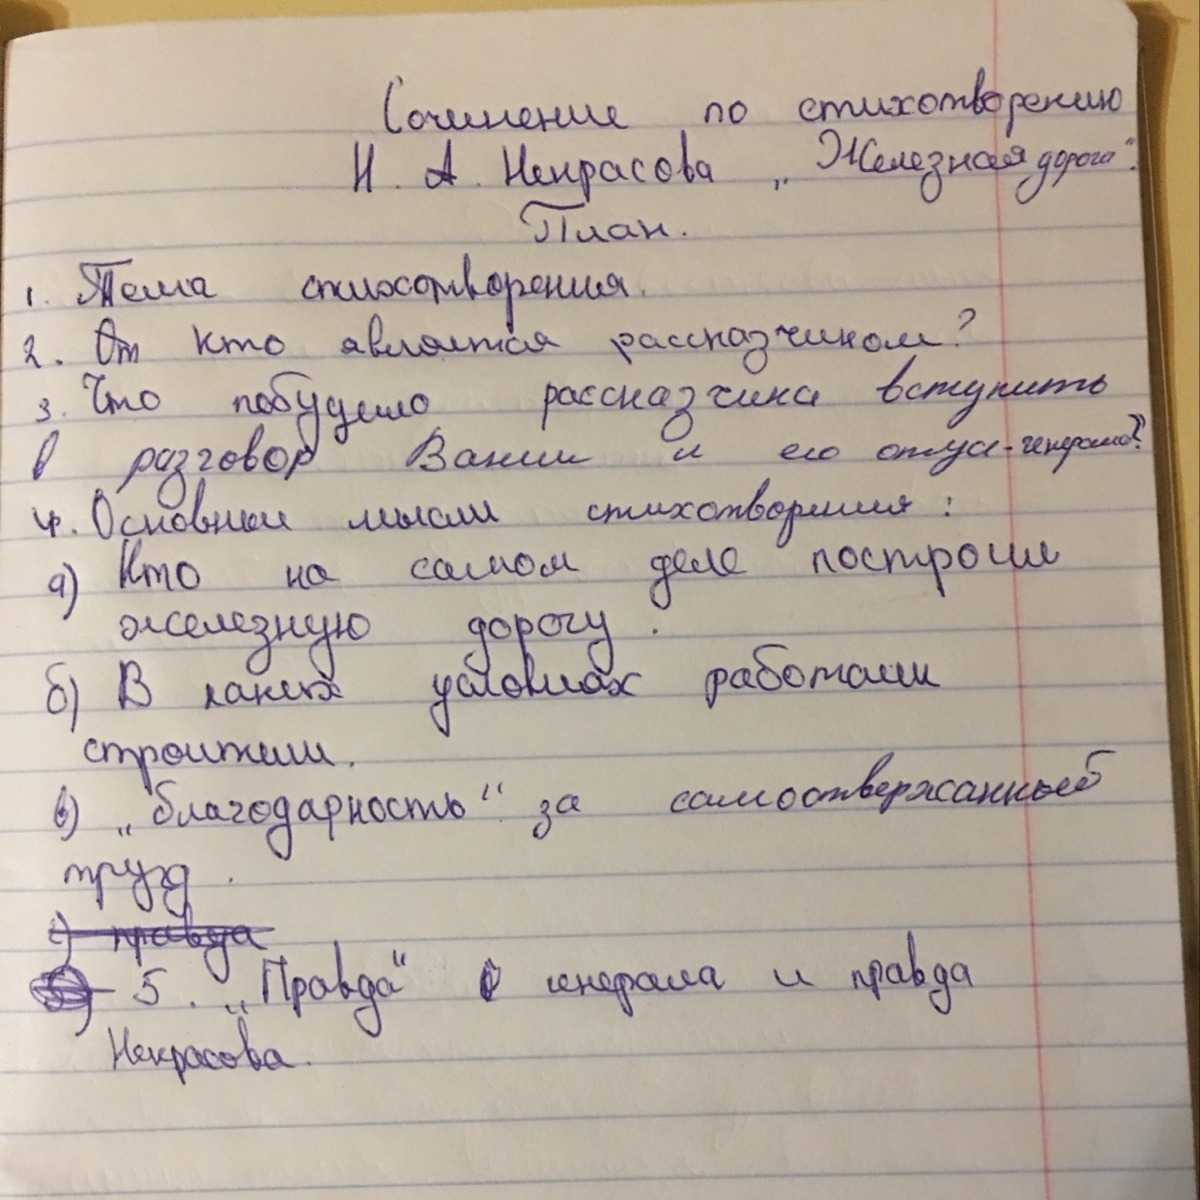 Сочинение по стихотворению
Н. А. Некрасова „Железная дорога".
План.
1. Тема стихотворения.
2. От кто является рассказчиком?
3. Что побудило рассказчика вступить
в разговор Вани и его отца-генерала?
4. Основные мысли стихотворения:
а) Кто на самом деле построили
железную дорогу.
б) В каких условиях работали
строители.
в) „благодарность" за самоотвержанный
труд.
г) правда
5. „Правда" генерала и правда
Некрасова.